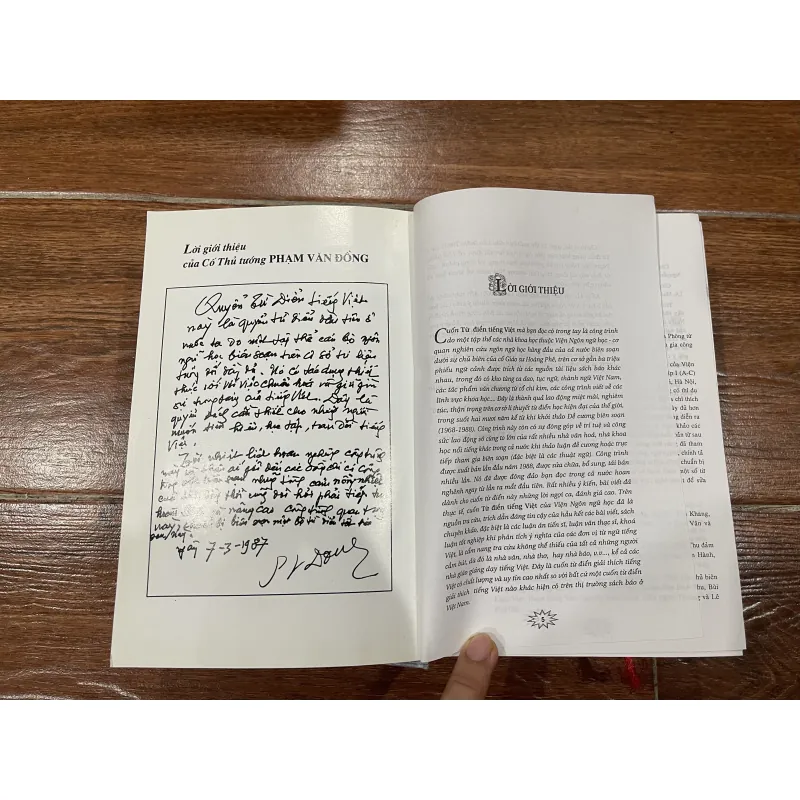 Lời giới thiệu
của Cố Thủ tướng PHẠM VĂN ĐỒNG
Quyển Từ Điển tiếng Việt
này là quyển từ điển đầu tiên ở
nước ta do một tập thể cán bộ ngôn
ngữ học biên soạn trên cơ sở tư liệu
đầy đủ. Nó có tác dụng thiết
thực đối với việc chuẩn hoá và giữ gìn
sự trong sáng của tiếng Việt. Đây là
quyển sách cần thiết cho những người
muốn tìm hiểu, học tập, trau dồi tiếng
Việt.
7-3-1987
LỜI GIỚI THIỆU
Cuốn Từ điển tiếng Việt mà bạn đọc có trong tay là công trình
do một tập thể các nhà khoa học thuộc Viện Ngôn ngữ học - cơ
quan nghiên cứu ngôn ngữ học hàng đầu của cả nước biên soạn
dưới sự chủ biên của cố Giáo sư Hoàng Phê, trên cơ sở gần ba triệu
phiếu ngữ cảnh được trích từ các nguồn tài liệu sách báo khác
nhau, trong đó có kho tàng ca dao, tục ngữ, thành ngữ Việt Nam,
các tác phẩm văn chương từ cổ chí kim, các công trình viết về các
lĩnh vực khoa học... Đây là thành quả lao động miệt mài, nghiêm
túc, thận trọng trên cơ sở lí thuyết từ điển học hiện đại của thế giới,
trong suốt hai mươi năm kể từ khi khởi thảo Đề cương biên soạn
(1968-1988). Công trình này còn có sự đóng góp về trí tuệ và công
sức lao động số cùng to lớn của rất nhiều nhà văn hoá, nhà khoa
học nổi tiếng khác trong cả nước khi thảo luận đề cương hoặc trực
tiếp tham gia biên soạn (đặc biệt là các thuật ngữ). Công trình
được xuất bản lần đầu năm 1988, được sửa chữa, bổ sung, tái bản
nhiều lần. Nó đã được đông đảo bạn đọc trong cả nước hoan
nghênh ngay từ lần ra mắt đầu tiên. Rất nhiều ý kiến, bài viết đã
dành cho cuốn từ điển này những lời ngợi ca, đánh giá cao. Trên
thực tế, cuốn Từ điển tiếng Việt của Viện Ngôn ngữ học đã là
nguồn tra cứu, trích dẫn đáng tin cậy của hầu hết các bài viết, sách
chuyên khảo, đặc biệt là các luận án tiến sĩ, luận văn thạc sĩ, khoá
luận tốt nghiệp khi phân tích ý nghĩa của các đơn vị từ ngữ tiếng
Việt, là cẩm nang tra cứu không thể thiếu của tất cả những người
cầm bút, dù đó là nhà văn, nhà thơ, hay nhà báo, v.v..., kể cả các
nhà giáo giảng dạy tiếng Việt. Đây là cuốn từ điển giải thích tiếng
Việt có chất lượng và uy tín cao nhất so với bất cứ một cuốn từ điển
giải thích tiếng Việt nào khác hiện có trên thị trường sách báo ở
Việt Nam.
5
Phòng từ
gia công
của Viện
ập 1 (A-C)
Hà Nội,
có thí dụ
chú thích
đủ hơn
diễn ra
khảo các
từ sau
chính tả
chuẩn bị
một số từ
để sửa
Kháng,
Văn và
đảm
Hành,
hủ biên
hu, Bùi
g và Lê